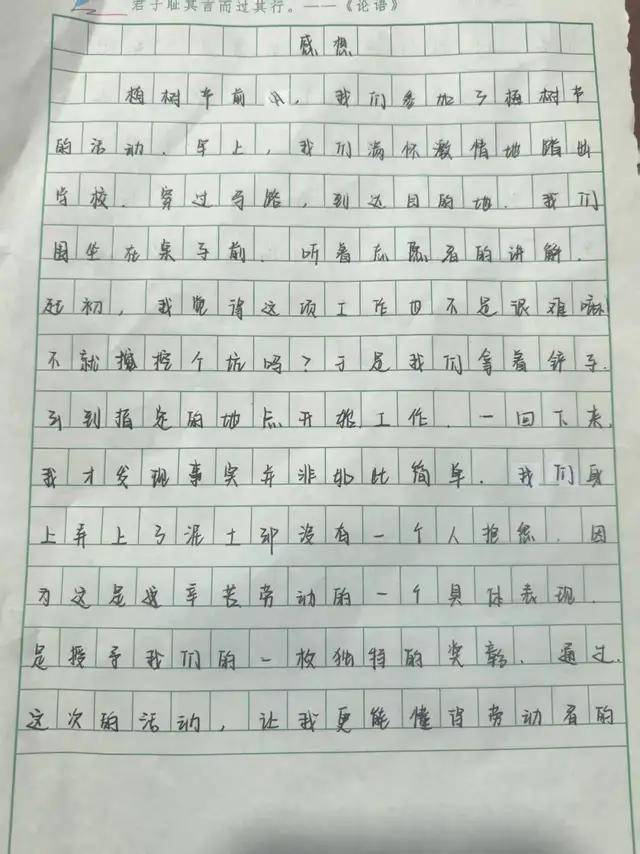 君子耻其言而过其行。——《论语》
感想
植树节前夕，我们参加了植树节
的活动．早上，我们满怀激情地踏出
学校．穿过马路，到达目的地．我们
围坐在桌子前．听着志愿者的讲解．
起初，我觉得这项工作也不是很难嘛！
不就挖个坑吗？于是我们拿着铲子．
到指定的地点开挖工作．一回下来，
我才发现事实并非如此简单．我们身
上弄上了泥土却没有一个人抱怨．因
为这是这辛苦劳动的一个具体表现．
是授予我们的一枚独特的奖章．通过
这次的活动，让我更能懂得劳动者的